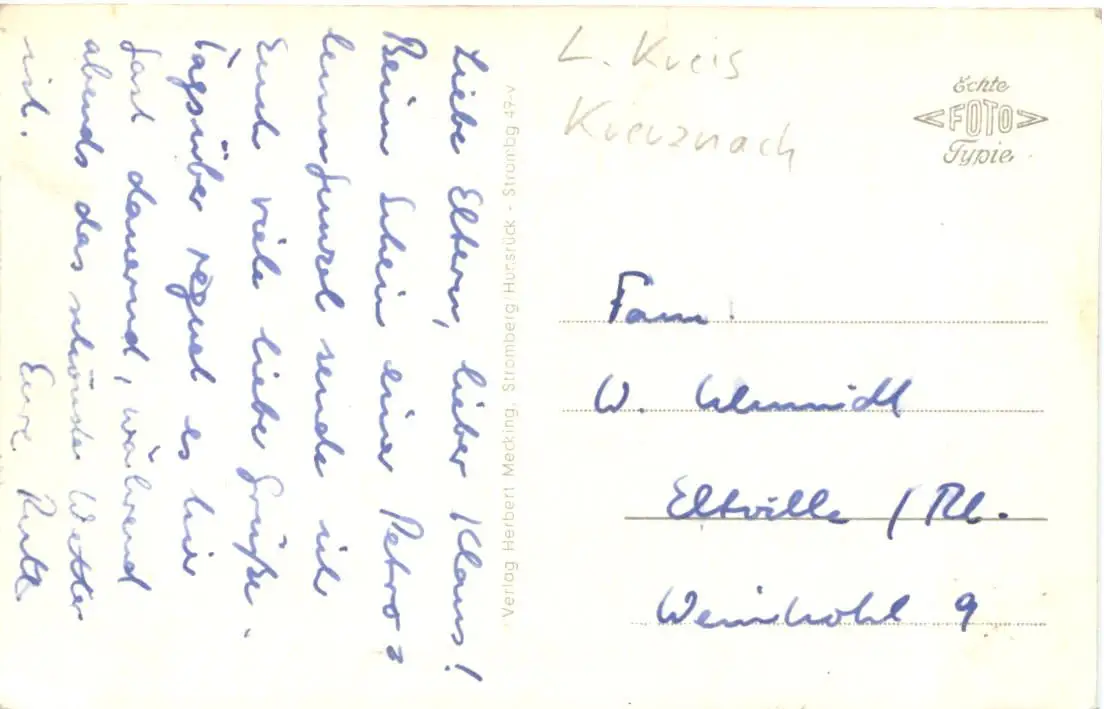 Liebe Eltern, lieber Klaus!
Beim Schein einer Petro=
leumfunzel sende ich
Euch viele liebe Grüße.
Tagsüber regnet es hier
fast dauernd, während
abends das schönste Wetter
ist. Eure Ruth
Verlag Herbert Mecking, Stromberg/Hunsrück - Strombg 47-v
L. Kreis
Kreuznach
Echte
FOTO
Typie
Fam.
W. Schmidt
Eltville / Rh.
Weinhohl 9